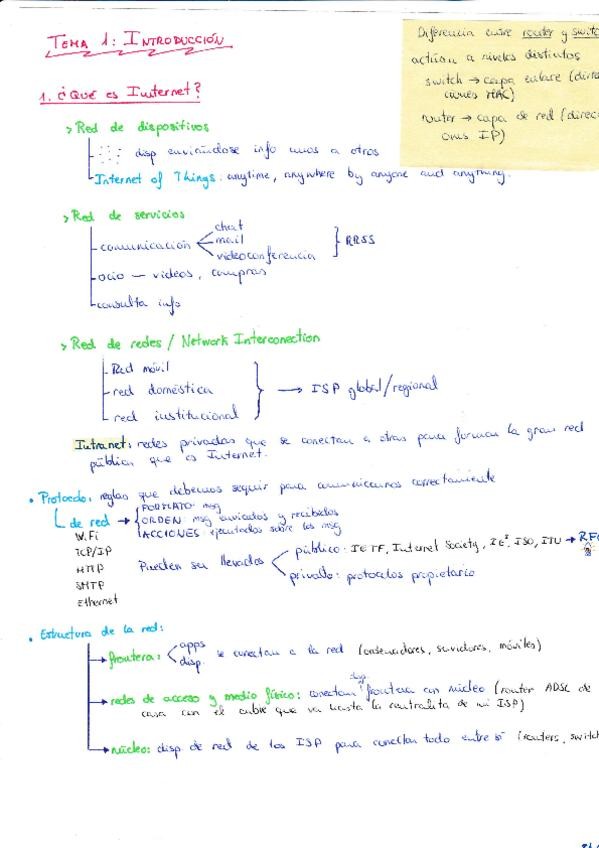 TEMA 1: INTRODUCCIÓN
Diferencia entre router y switch
actúan a niveles distintos
switch → capa enlace (direc
ciones MAC)
router → capa de red (direcci
ones IP)
1. ¿QUÉ ES Internet?
> Red de dispositivos
disp enviándose info unos a otros
Internet of Things: anytime, anywhere by anyone and anything.
> Red de servicios
comunicación
chat
mail
videoconferencia
RRSS
ocio — videos, compras
consulta info
> Red de redes / Network Interconection
Red móvil
red doméstica
red institucional
→ ISP global/regional
Intranet: redes privadas que se conectan a otras para formar la gran red
pública que es Internet.
• Protocolo: reglas que debemos seguir para comunicarnos correctamente
de red →
FORMATO: msg
ORDEN: msg enviados y recibidos
ACCIONES: ejecutados sobre los msg
WiFi
TCP/IP
HTTP
SMTP
Ethernet
Pueden ser llevados
público: IETF, Internet Society, ISO, ITU → RFC
privado: protocolos propietario
• Estructura de la red:
frontera:
apps
disp.
se conectan a la red (ordenadores, servidores, móviles)
redes de acceso y medio físico: conectan disp frontera con núcleo (router ADSL de
casa con el cable que va hasta la centralita de mi ISP)
núcleo: disp de red de los ISP para conectar todo entre sí (routers, switch